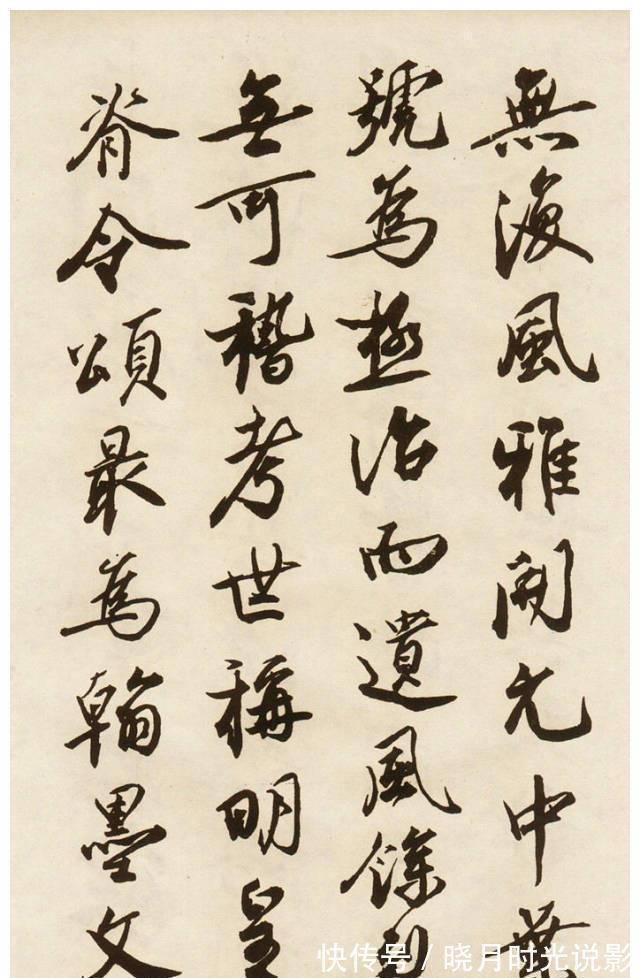 無復風雅開元中
號為極治而遺風餘
無可稽考世稱明皇
脊令頌最為翰墨文
快传号 / 晓月时光说影